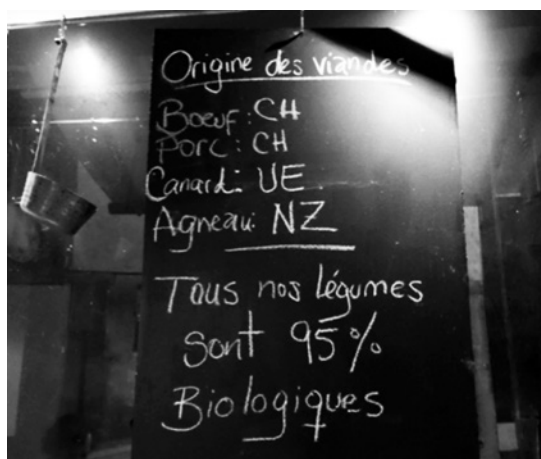 Origine des viandes
Bœuf: CH
Porc: CH
Canard: UE
Agneau: NZ
Tous nos légumes
sont 95%
Biologiques